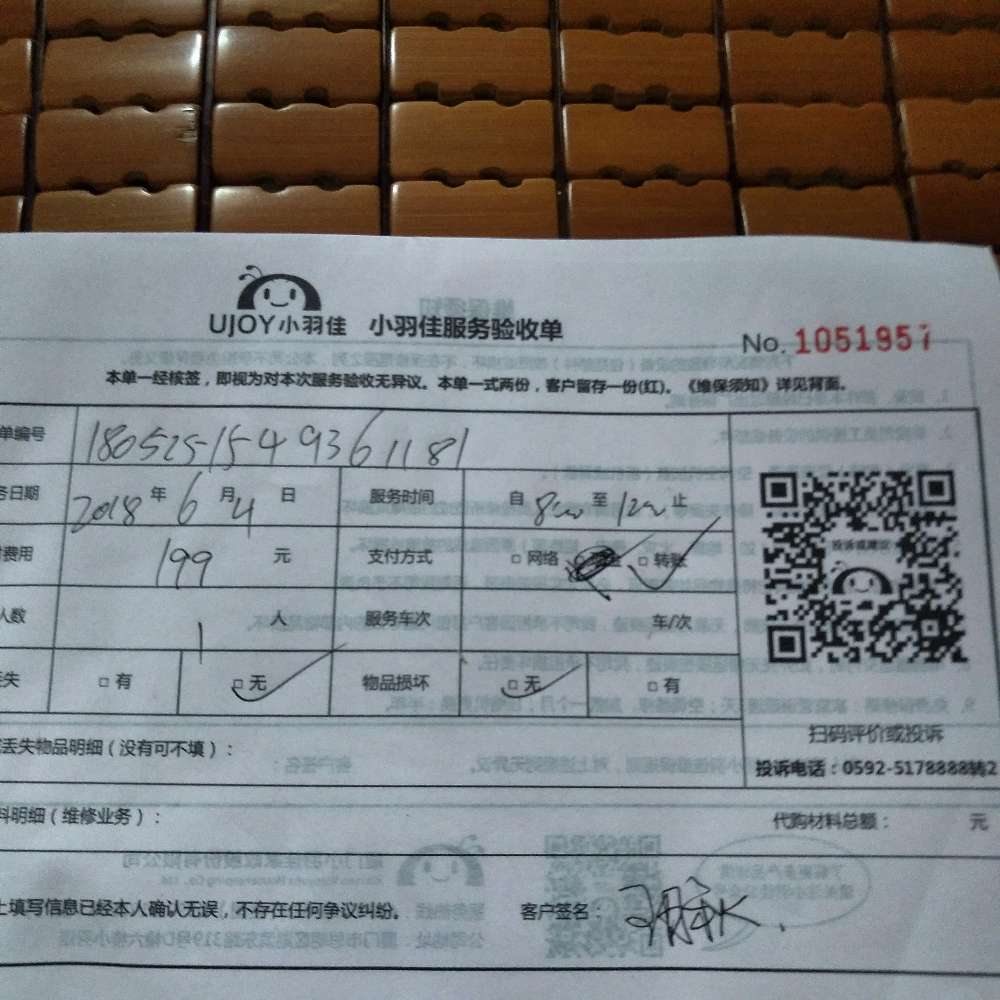 UJOY小羽佳 小羽佳服务验收单
No. 1051957
本单一经核签，即视为对本次服务验收无异议。本单一式两份，客户留存一份(红)。《维保须知》详见背面。
单编号 180525154 9361181
务日期 2018 年 6 月 4 日 服务时间 自 800 至 1200 止
费用 199 元 支付方式 □ 网络 □ 转账
人数 1 人 服务车次 车/次
丢失 □ 有 □ 无 物品损坏 □ 无 □ 有
投诉或建议
扫码评价或投诉
投诉电话：0592-5178888转2
丢失物品明细（没有可不填）：
料明细（维修业务）： 代购材料总额： 元
上填写信息已经本人确认无误，不存在任何争议纠纷。 客户签名：